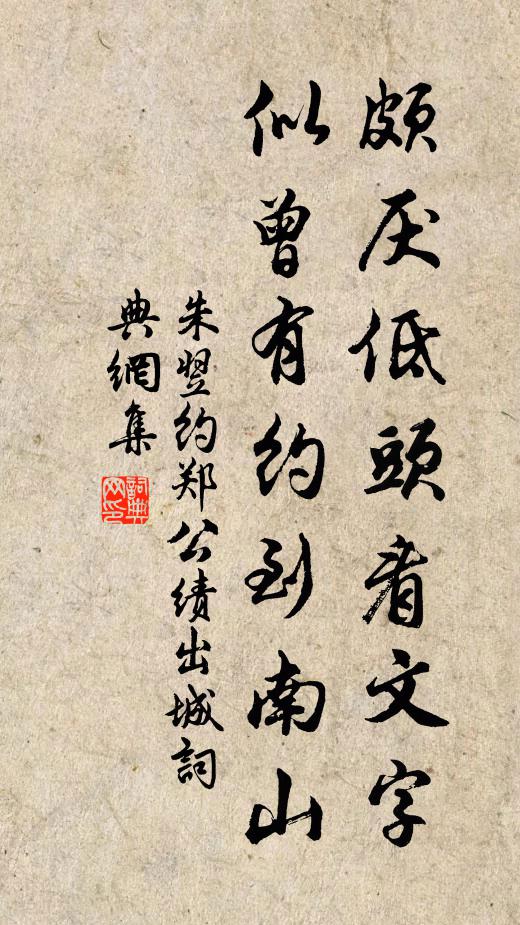 頗厌低頭看文字
似曾有約到南山
朱翌約郑公绩出城詞
典網集
詞典
网印